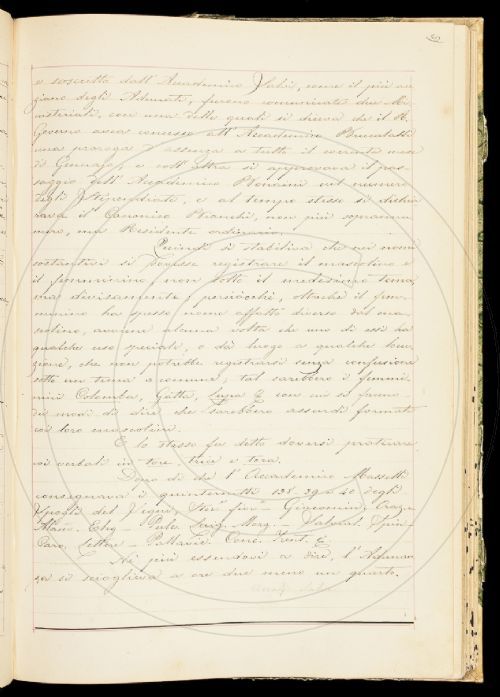 e soscritto dall'Accademico Fabri, come il più an
ziano degli Adunati, furono comunicate due Mi
nisteriali, con una delle quali si diceva che il R.
Governo avea concesso all'Accademico Brucalassi
una proroga d'assenza a tutto il corrente mese
di Gennajo, e coll'altra si approvava il pas
saggio dell'Accademico Bonaini nel numero
degli Stipendiati, e al tempo stesso si dichia
rava il Canonico Bianchi, non più soprannu
mero, ma Residente ordinario.
Quindi si stabiliva che nei nomi
sostantivi si dovesse registrare il mascolino e
il femminino, non sotto il medesimo tema,
ma divisamente; perciocchè, oltrechè il fem-
minino ha spesso nome affatto diverso dal ma
scolino, avviene alcuna volta che uno di essi ha
qualche uso speciale, o dà luogo a qualche locu
zione, che non potrebbe registrarsi senza confusione
sotto un tema comune; tal sarebbero i femmi-
nini Colomba, Gatta, Lupa &c con cui si fanno
dei modi di dire che sarebbero assurdi formati
coi loro mascolini.
E lo stesso fu detto doversi praticare
coi verbali in tore, trice e tora.
Dopo di che l'Accademico Massetti
consegnava i quinternetti 138-39 e 40 degli
Spogli del Segni, Stor. fior. -
Caro, Lettere - Pallavic. Conc. Trent. &c
Nè più essendovi a dire, l'Adunan
za si scioglieva a ore due meno un quarto.